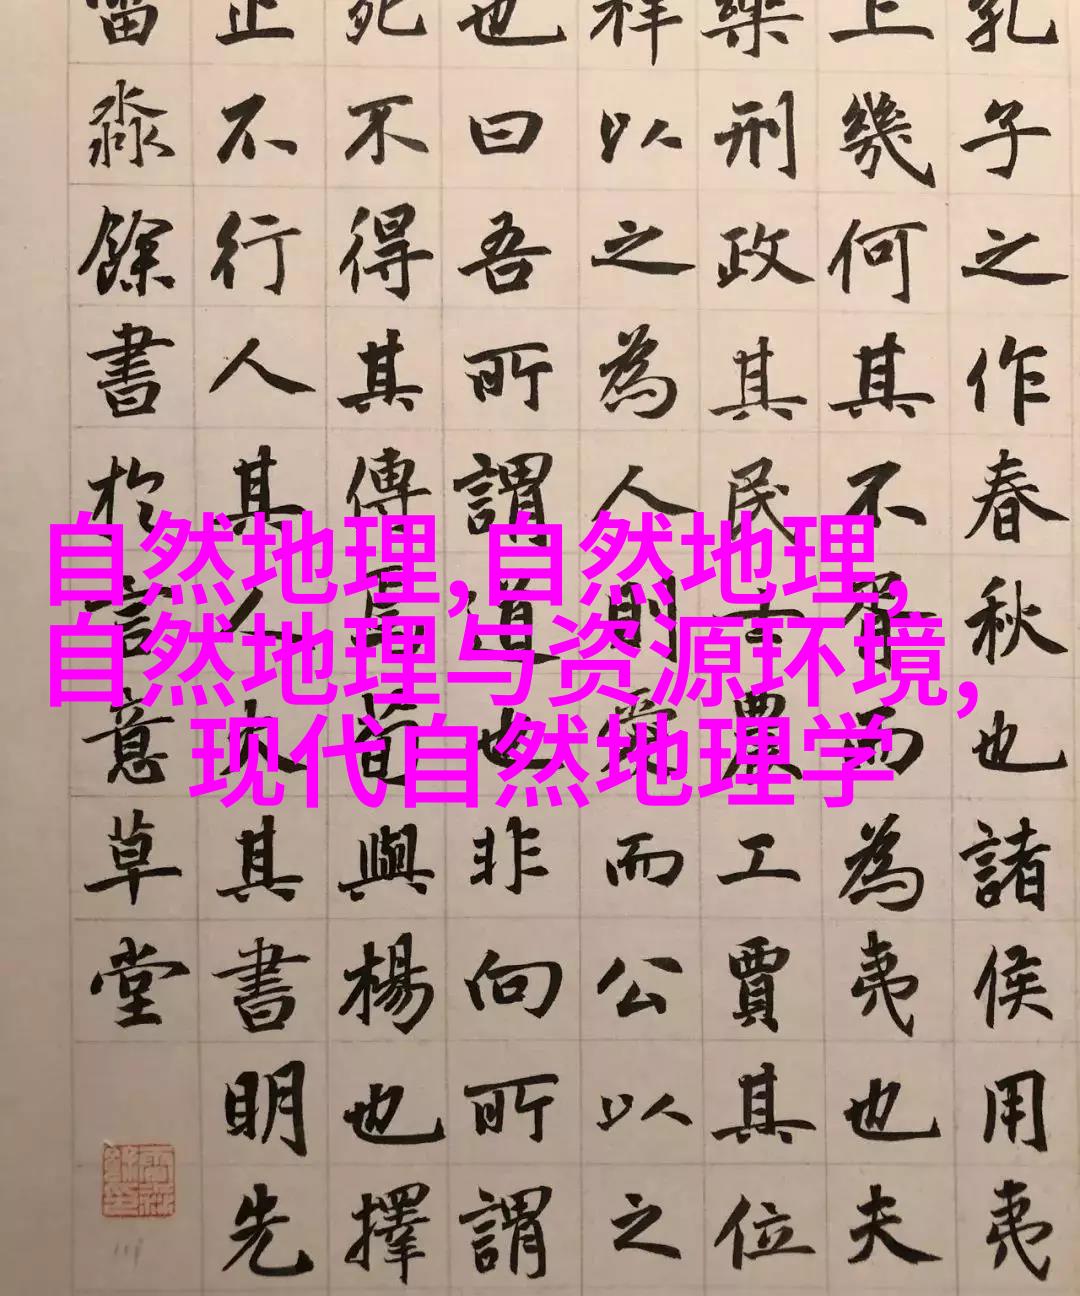 自然地理,自然地理,
自然地理与资源环境,
现代自然地理学
孔子之作春秋也諸侯用夷
上幾何其不胥而為夷也夫
樂刑政其民士農工賈其位
祥以之為人則愛而公以之
也曰吾所謂道也非向所謂
死不得其傳焉荀與楊也擇
止不行人其人火其書明先
淼餘書於言意草堂